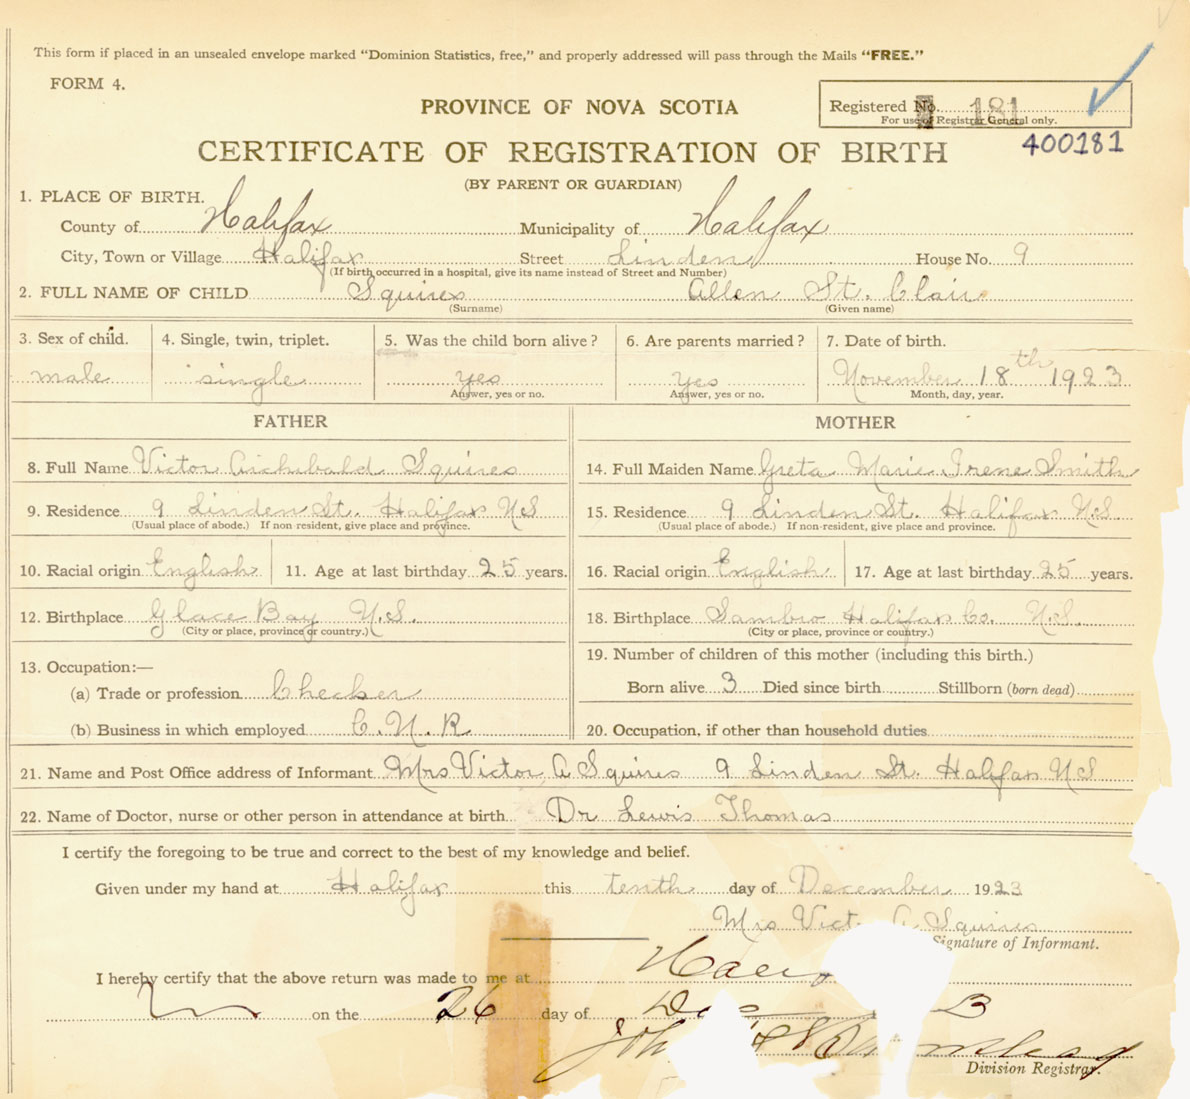 This form if placed in an unsealed envelope marked "Dominion Statistics, free," and properly addressed will pass through the Mails "FREE."
FORM 4.
PROVINCE OF NOVA SCOTIA
Registered No. 181
For use of Registrar General only.
400181
CERTIFICATE OF REGISTRATION OF BIRTH
(BY PARENT OR GUARDIAN)
1. PLACE OF BIRTH.
County of Halifax Municipality of Halifax
City, Town or Village Halifax Street Linden House No. 9
(If birth occurred in a hospital, give its name instead of Street and Number)
2. FULL NAME OF CHILD Squires Allen St. Clair
(Surname) (Given name)
3. Sex of child. 4. Single, twin, triplet. 5. Was the child born alive? 6. Are parents married? 7. Date of birth.
male single yes yes November 18th 1923
Answer, yes or no. Answer, yes or no. Month, day, year.
FATHER MOTHER
8. Full Name Victor Archibald Squires 14. Full Maiden Name Greta Marie Irene Smith
9. Residence 9 Linden St. Halifax N.S 15. Residence 9 Linden St. Halifax N.S.
(Usual place of abode.) If non-resident, give place and province. (Usual place of abode.) If non-resident, give place and province.
10. Racial origin English 11. Age at last birthday 25 years. 16. Racial origin English 17. Age at last birthday 25 years.
12. Birthplace Glace Bay N.S. 18. Birthplace Sambro Halifax Co. N.S.
(City or place, province or country.) (City or place, province or country.)
13. Occupation:— 19. Number of children of this mother (including this birth.)
(a) Trade or profession Checker Born alive 3 Died since birth Stillborn (born dead)
(b) Business in which employed C.N.R 20. Occupation, if other than household duties
21. Name and Post Office address of Informant Mrs Victor A Squires 9 Linden St. Halifax N S
22. Name of Doctor, nurse or other person in attendance at birth Dr Lewis Thomas
I certify the foregoing to be true and correct to the best of my knowledge and belief.
Given under my hand at Halifax this tenth day of December 1923
Mrs Vict A Squires
Signature of Informant.
I hereby certify that the above return was made to me at
on the 26 day of 3
Division Registrar.